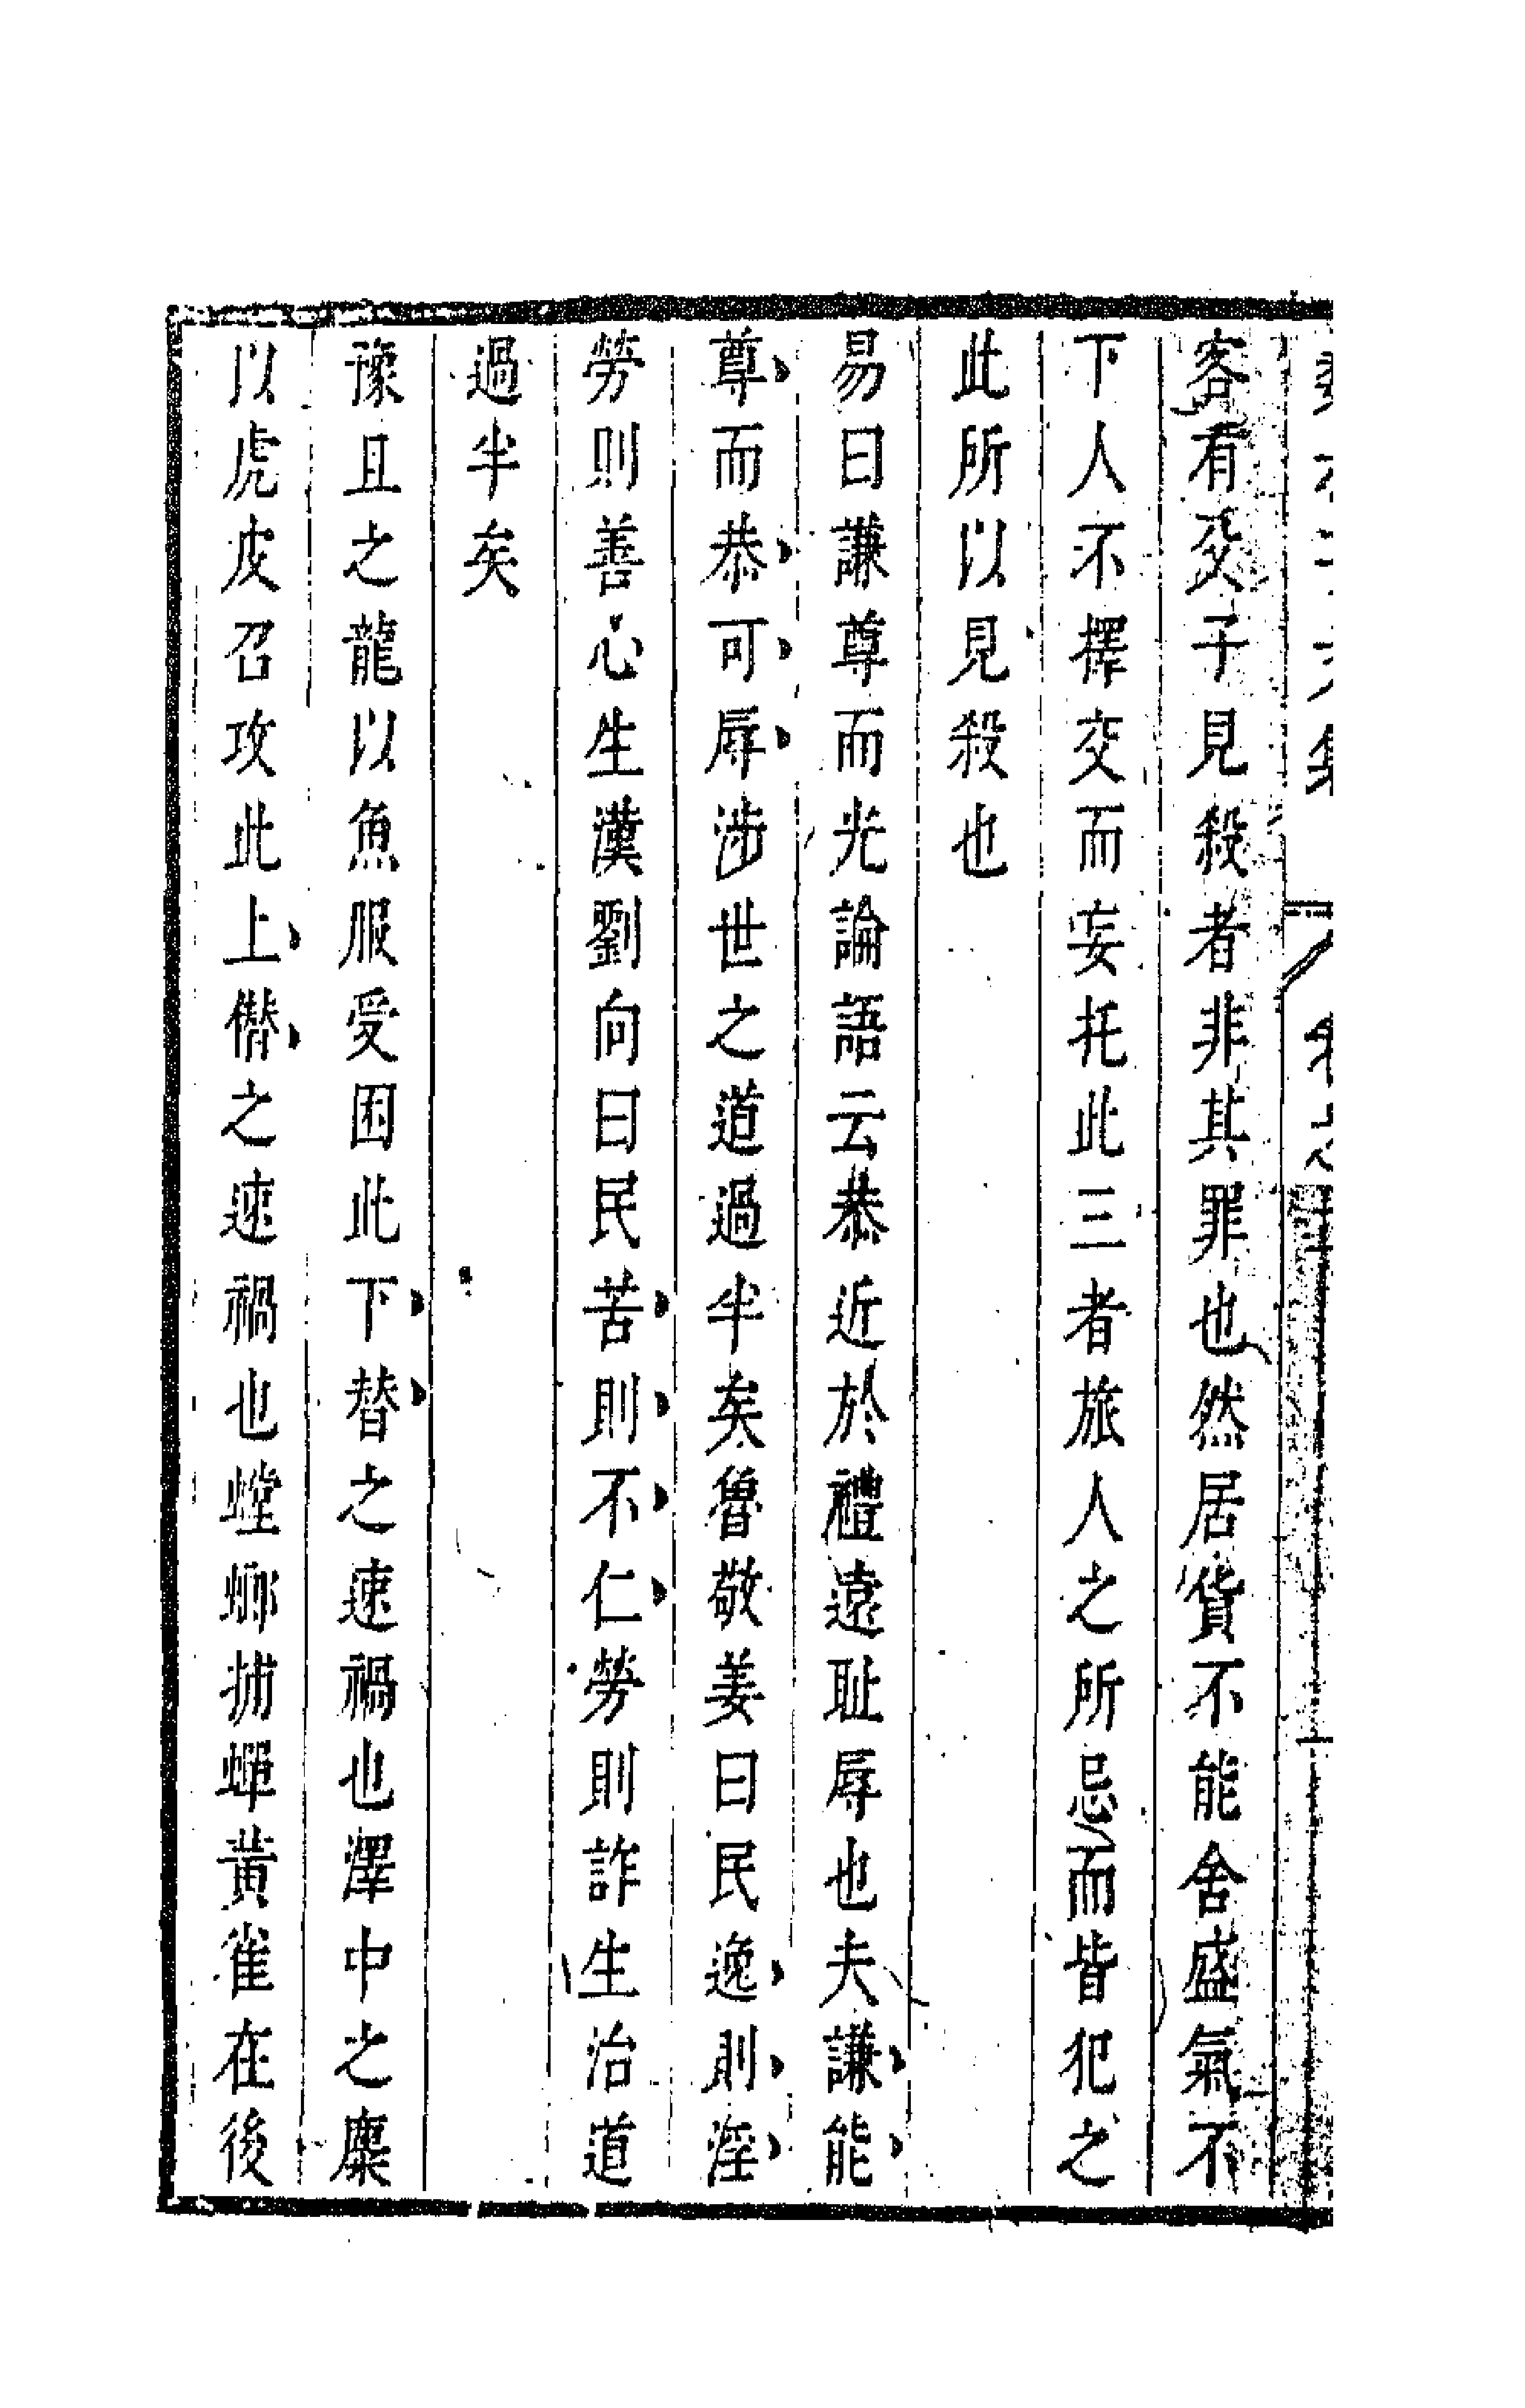 客有父子見殺者非其罪也然居貨不能舍盛氣不
下人不擇交而妄托此三者旅人之所忌而皆犯之
此所以見殺也
易曰謙尊而光論語云恭近於禮遠耻辱也夫謙能
尊而恭可辱涉世之道過半矣魯敬姜曰民逸則淫
勞則善心生漢劉向曰民苦則不仁勞則詐生治道
過半矣
豫且之龍以魚服受困此下替之速禍也澤中之麋
以虎皮召攻此上僭之速禍也螳螂捕蟬黃雀在後